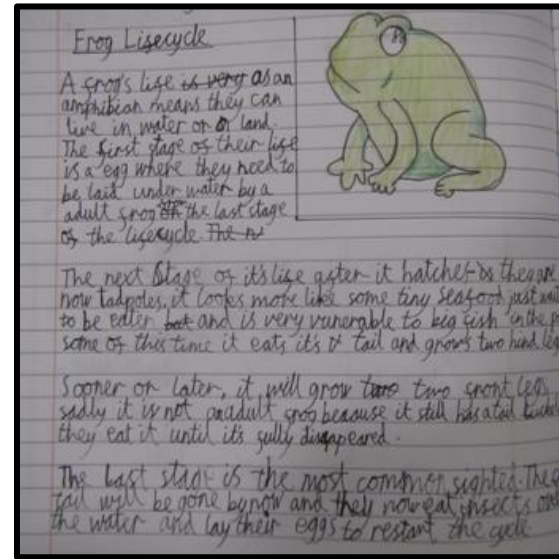 Frog Lifecycle
A frog's life is very as an
amphibian means they can
live in water or on land.
The first stage of their life
is a egg where they need to
be laid under water by a
adult frog the last stage
of the lifecycle. The n
The next stage of it's life after it hatches is they are
now tadpoles. it looks more like some tiny seafood just
to be eaten but and is very vunerable to big fish in the
some of this time it eats it's tail and grows two hind
Sooner or later, it will grow two two front legs
sadly it is not an adult frog beacause it still has a tail
they eat it until it's fully disappeared.
The last stage is the most common sighted. The
tail will be gone by now and they now eat insects on
the water and lay their eggs to restart the cycle